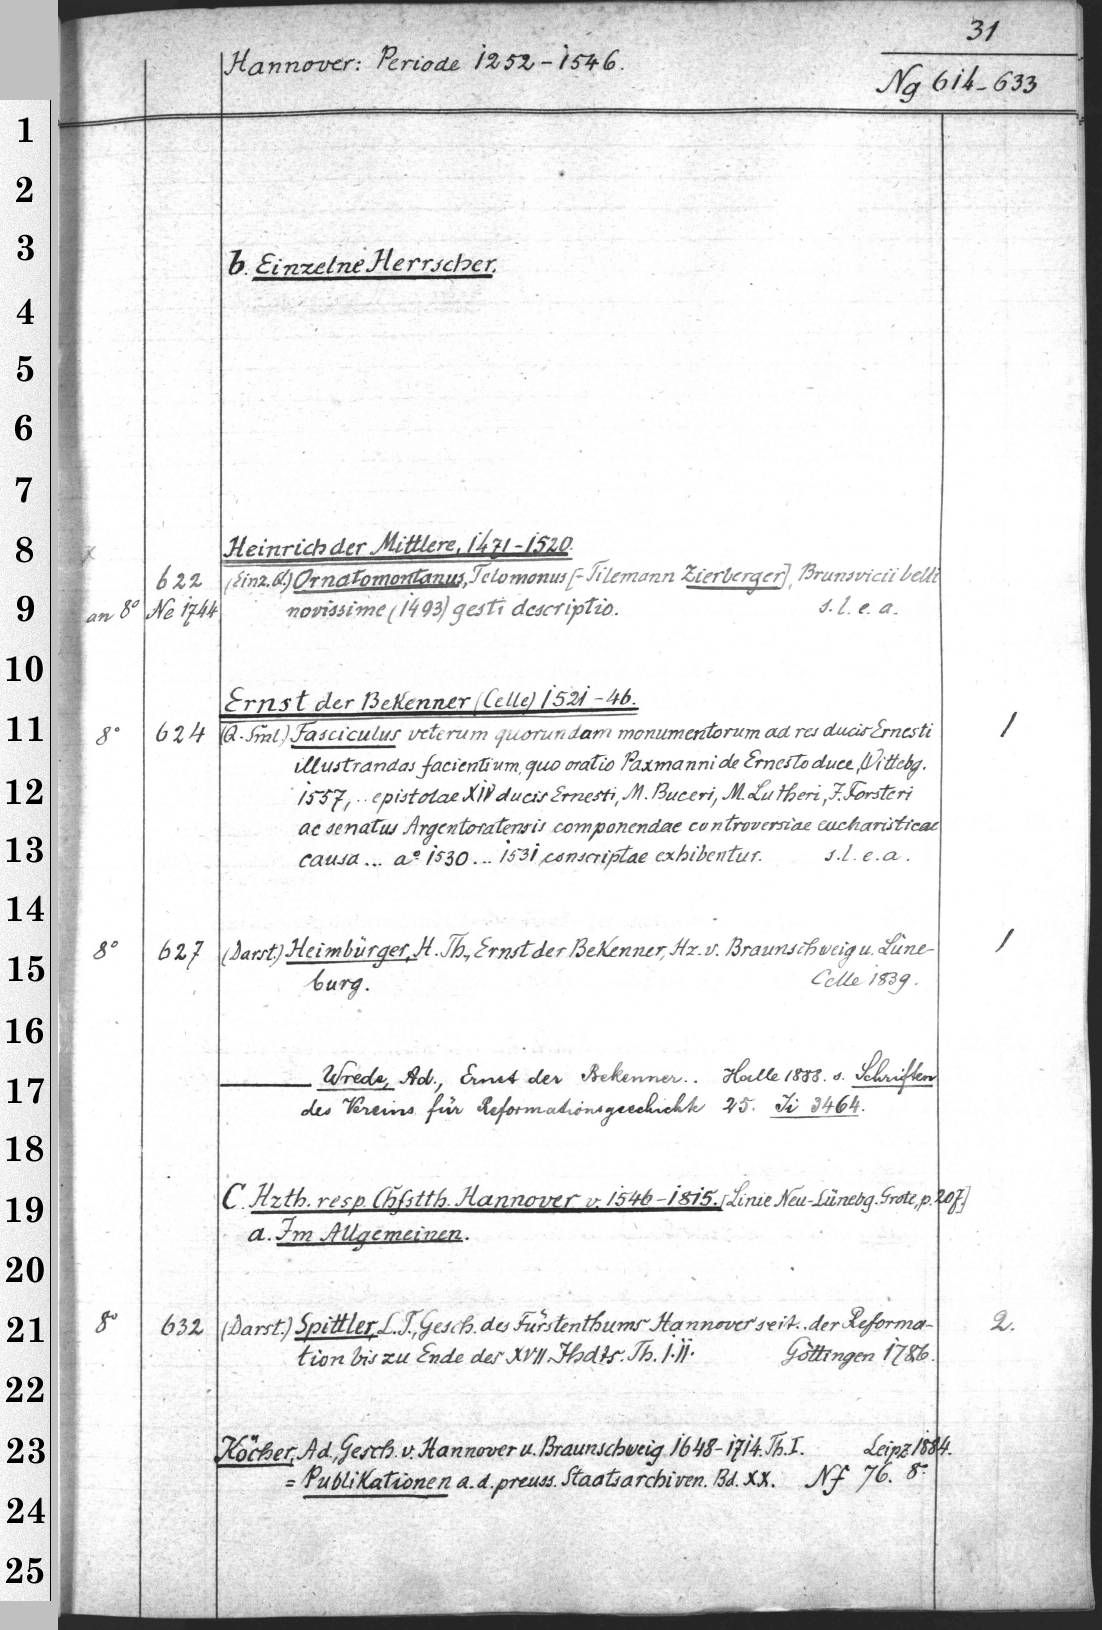 31
Hannover: Periode 1252-1546.
Ng 614-633
1
2
3
b. Einzelne Herrscher.
4
5
6
7
8
Heinrich der Mittlere, 1471-1520.
x
622 (Einz. Gt.) Ornatomontanus, Telomonus [-Tilemann Zierberger], Brunsvicii belli
9
an 8° Ne 1744 novissime (1493) gesti descriptio. s.l.e.a.
10
Ernst der Bekenner (Celle) 1521-46.
11
8° 624 (Q.-Sml.) Fasciculus veterum quorundam monumentorum ad res ducis Ernesti 1
illustrandas facientium, quo oratio Paxmanni de Ernesto duce, Vittebg.
12
1557, .. epistolae XIV ducis Ernesti, M. Buceri, M. Lutheri, F. Forsteri
ac senatus Argentoratensis componendae controversiae eucharisticae
13
causa... a° 1530... 1531 conscriptae exhibentur. s.l.e.a.
14
8° 627 (Darst.) Heimbürger, H. Th., Ernst der Bekenner, Hz. v. Braunschweig u. Lüne- 1
15
burg. Celle 1839.
16
17
Wrede, Ad., Ernst der Bekenner.. Halle 1888. s. Schriften
des Vereins für Reformationsgeschichte 25. Ii 3464.
18
19
C. Hzth. resp. Chfstth. Hannover v. 1546-1815. [Linie Neu-Lünebg. Grote, p. 207.]
a. Im Allgemeinen.
20
21
8° 632 (Darst.) Spittler, L.T., Gesch. des Fürstenthums Hannover seit.. der Reforma- 2.
tion bis zu Ende des XVII. Jhdts. Th. I.II. Göttingen 1786.
22
23
Köcher, Ad., Gesch. v. Hannover u. Braunschweig 1648-1714. Th. I. Leipz 1884.
= Publikationen a. d. preuss. Staatsarchiven. Bd. XX. Nf 76. 8°
24
25